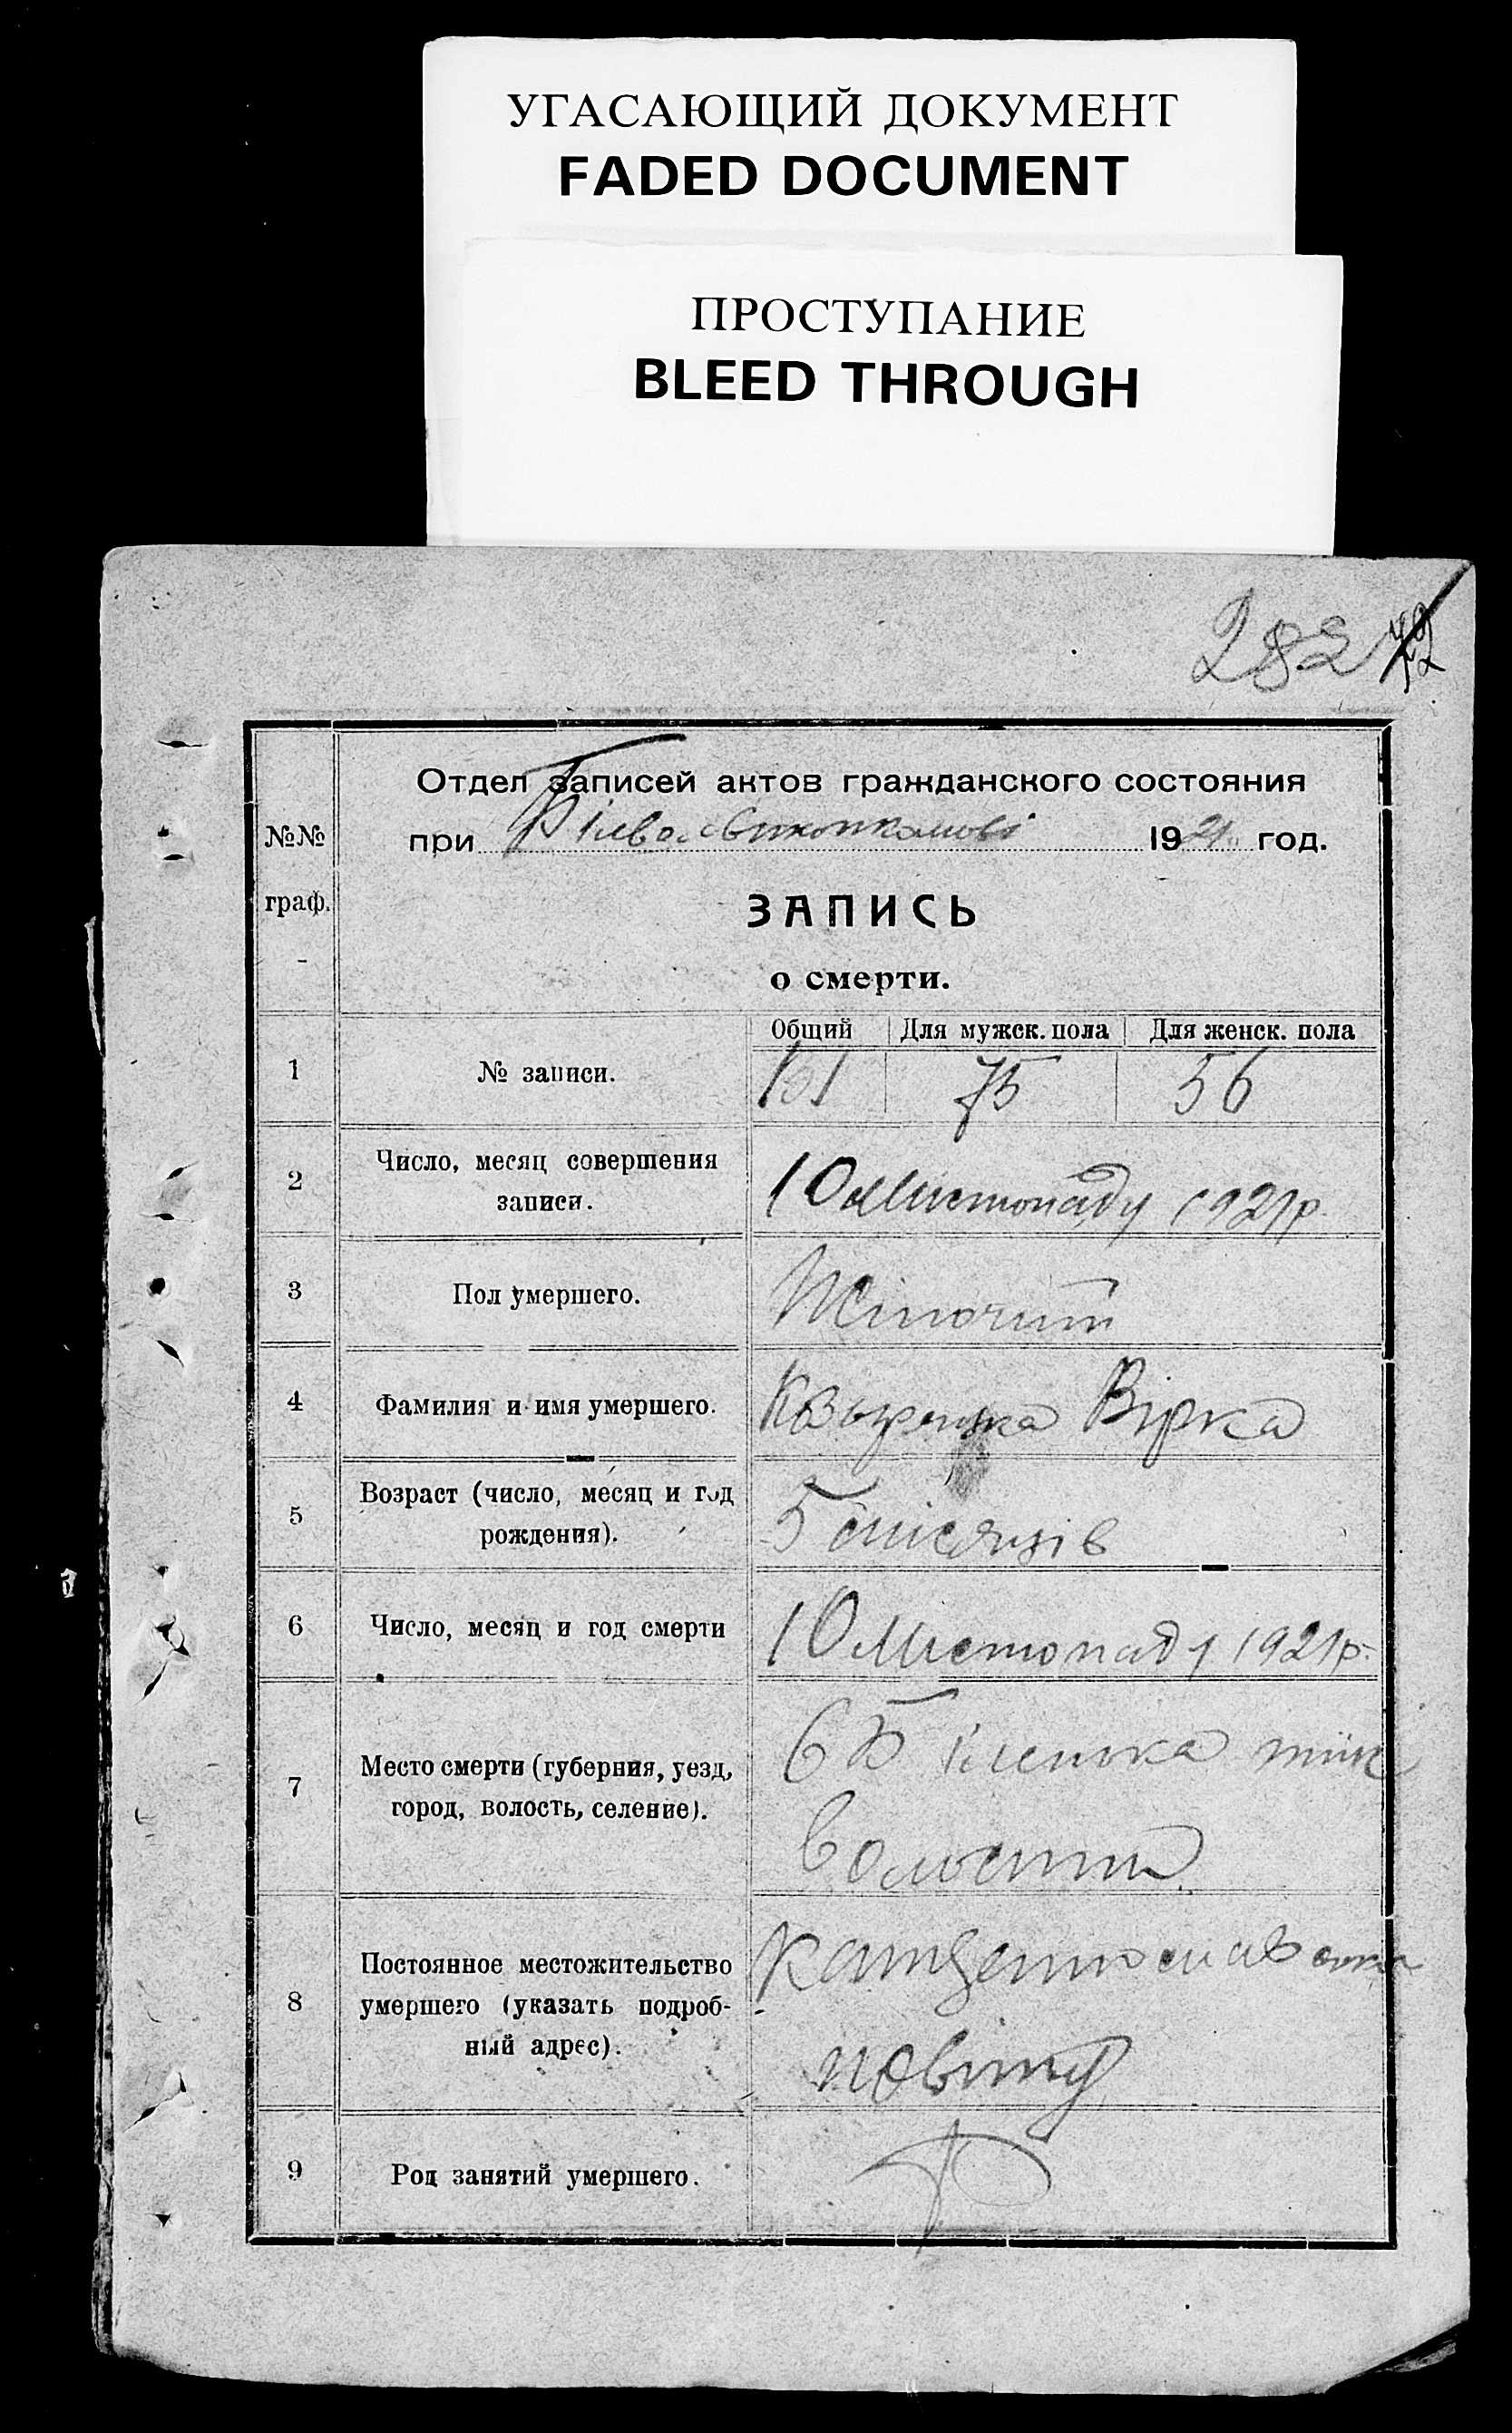 УГАСАЮЩИЙ ДОКУМЕНТ
FADED DOCUMENT
ПРОСТУПАНИЕ
BLEED THROUGH
282
№№
граф.
Отдел записей актов гражданского состояния
при 1921 год.
ЗАПИСЬ
о смерти.
Общий Для мужск. пола Для женск. пола
1 № записи. 131 75 56
2 Число, месяц совершения
записи.
10 Листопаду 1921 р.
3 Пол умершего. Жіночий
4 Фамилия и имя умершего. Вірка
5 Возраст (число, месяц и год
рождения).
5 місяців
6 Число, месяц и год смерти 10 Листопаду 1921 р.
7 Место смерти (губерния, уезд,
город, волость, селение).
волости
8 Постоянное местожительство
умершего (указать подроб-
ный адрес).
повіту
9 Род занятий умершего.